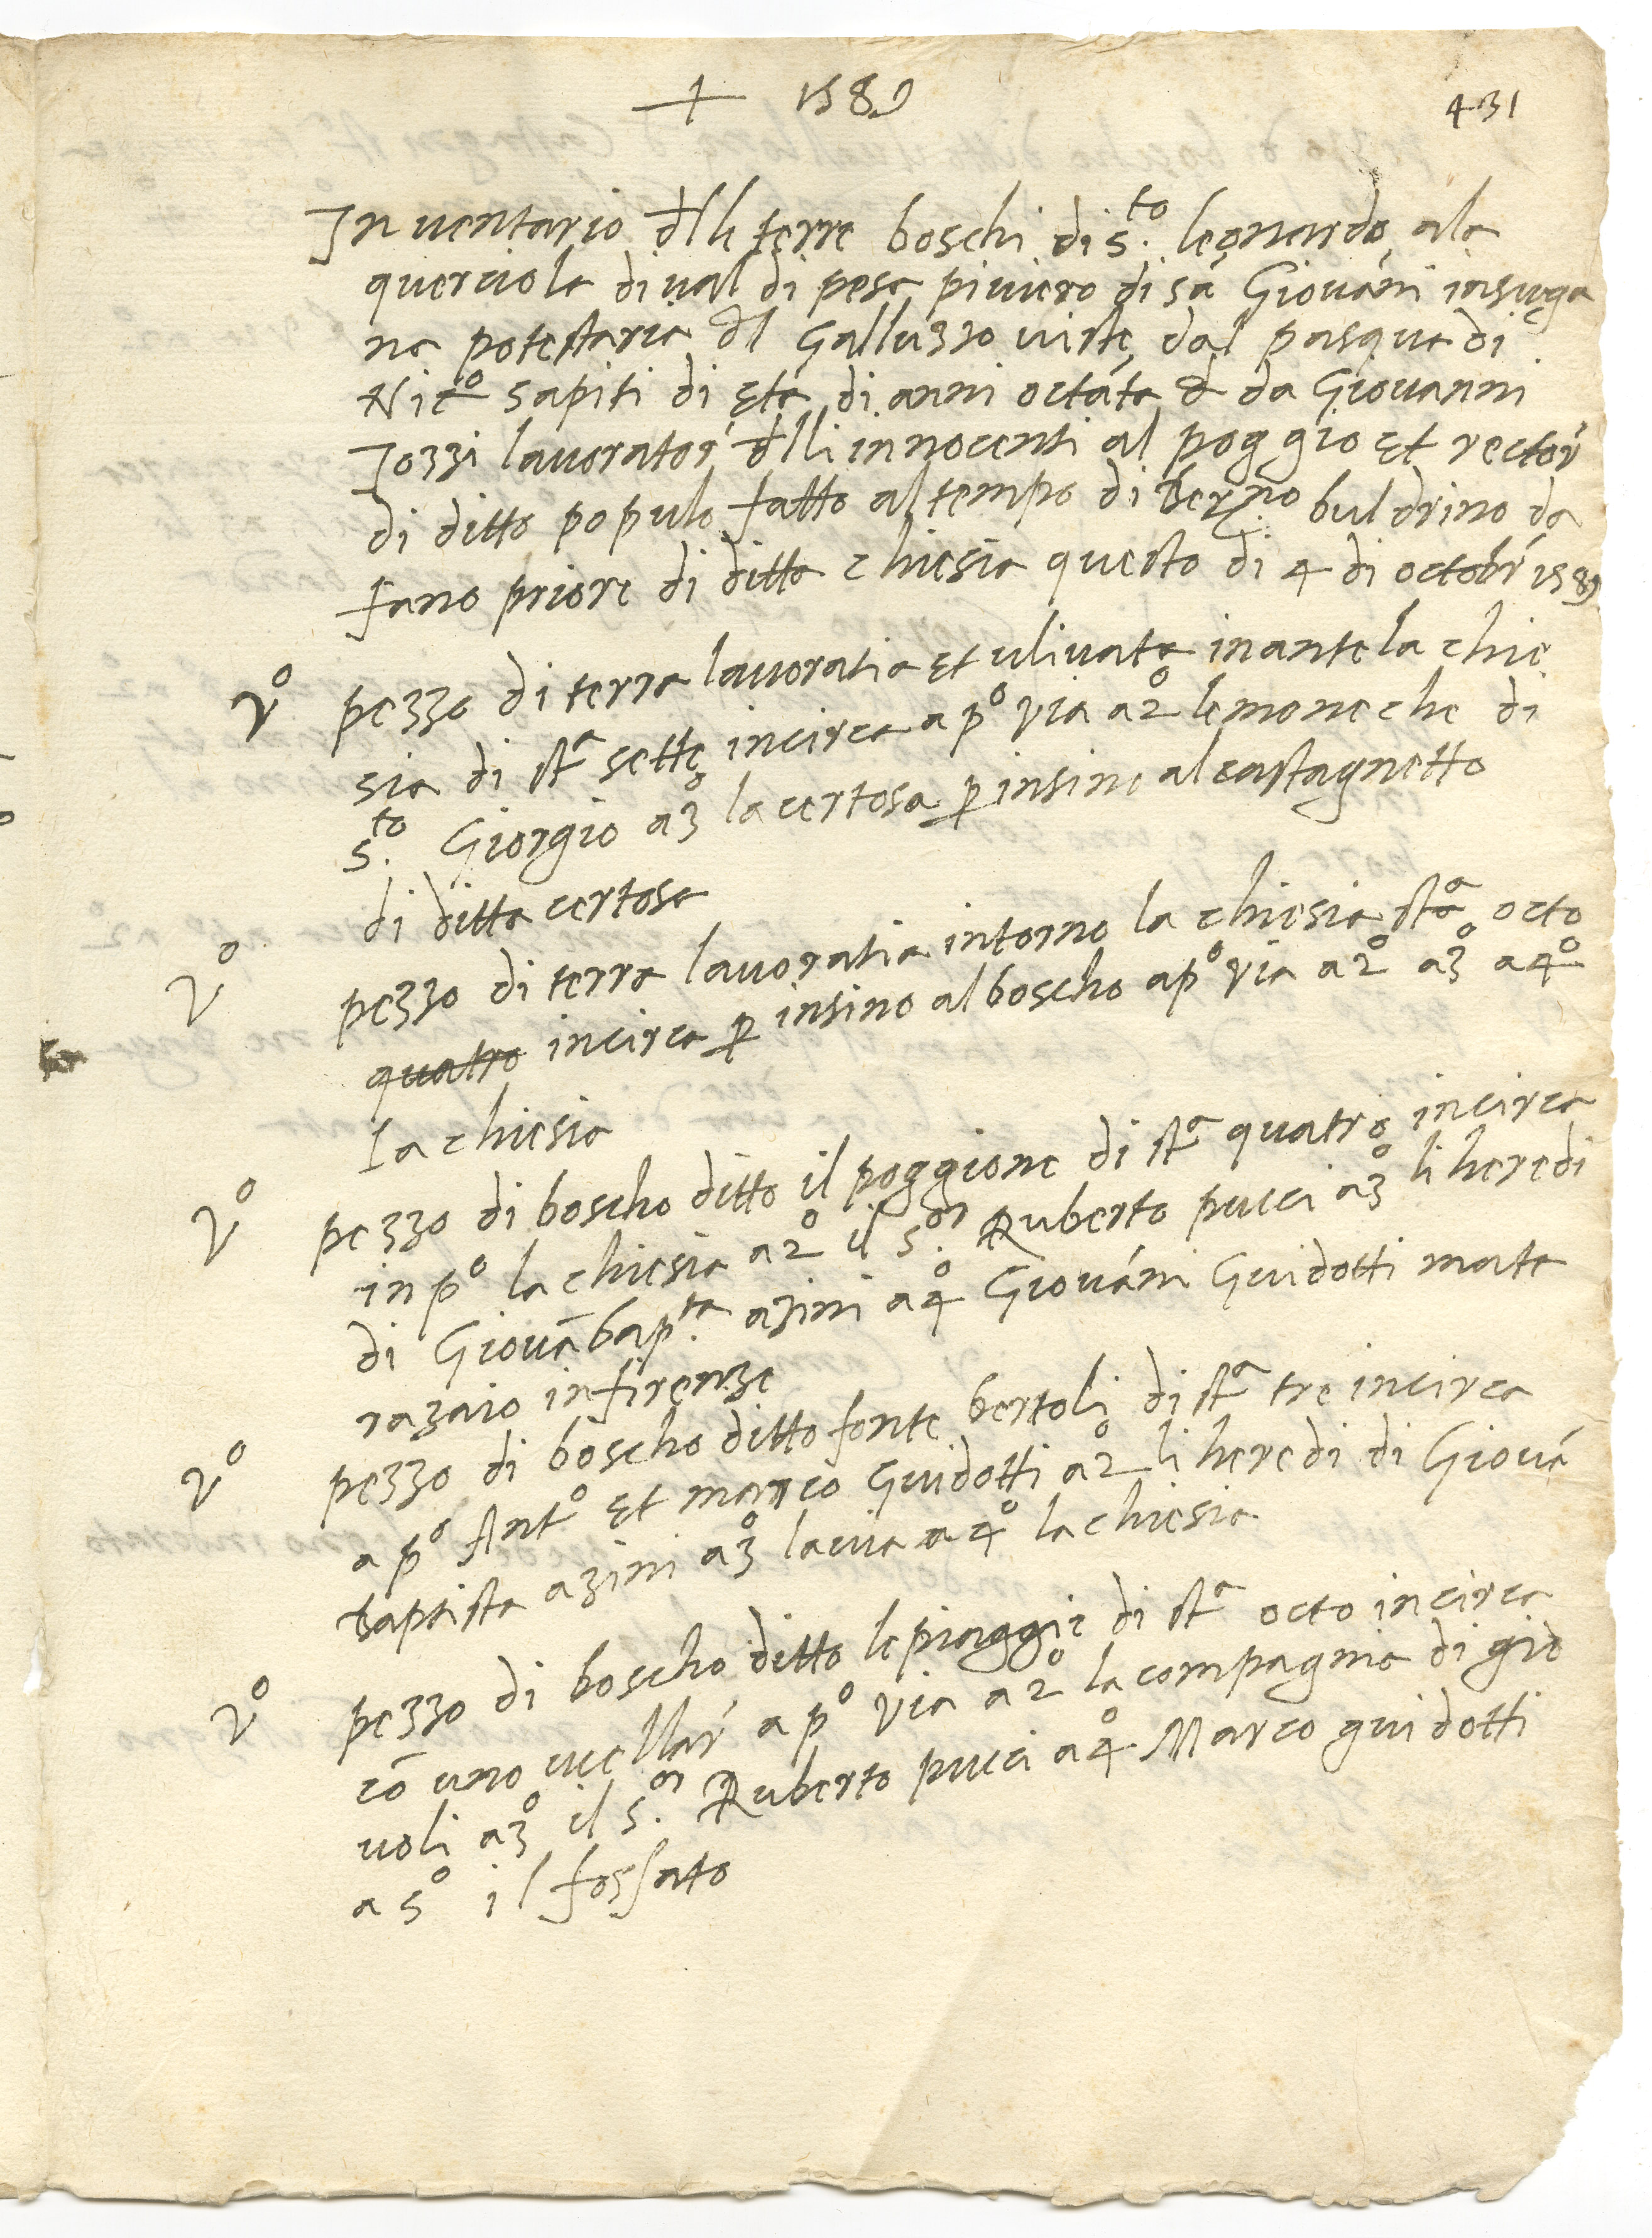 + 1589
431
Inventario dlle terre boschi di s.to leonardo ala
querciola di ual di pesa piuiero di sā Giouāni insuga
na potestaria dl Galluzzo uiste dal pasqua di
Nicº sapiti di età di anni octāta & da Giouanni
Iozzi lauorator dlli innocenti al poggio et rector
di ditto populo fatto al tempo di berno buldrino da
fano priore di ditta chiesia questo di 4 di octobr 1589
vº pezzo di terra lauoratia et uliuata inante la chie
sia di stª sette incirca a pº via a 2º le moneche di
s.to Giorgio a 3º la certosa p insino al castagnetto
di ditta certosa
vº pezzo di terra lauoratia intorno la chiesia stª octo
quatro incirca p insino al boscho a pº via a 2º a 3º a 4º
la chiesia
vº pezzo di boscho ditto il poggione di stª quatro incirca
in pº la chiesia a 2º il s.or Ruberto pucci a 3º li heredi
di Giouā bap.ta azini a 4º Giouāni Guidotti mate
razaio in firenze
vº pezzo di boscho ditto fonte bertoli di stª tre incirca
a pº Antº et marco Guidotti a 2º li heredi di Giouā
baptista azini a 3º la uia a 4º la chiesia
vº pezzo di boscho ditto le piaggie di stª octo incirca
cō uno ucellar a pº via a 2º la compagnia di gio
uoli a 3º il s.or Ruberto pucci a 4º Marco guidotti
a 5º il fossato